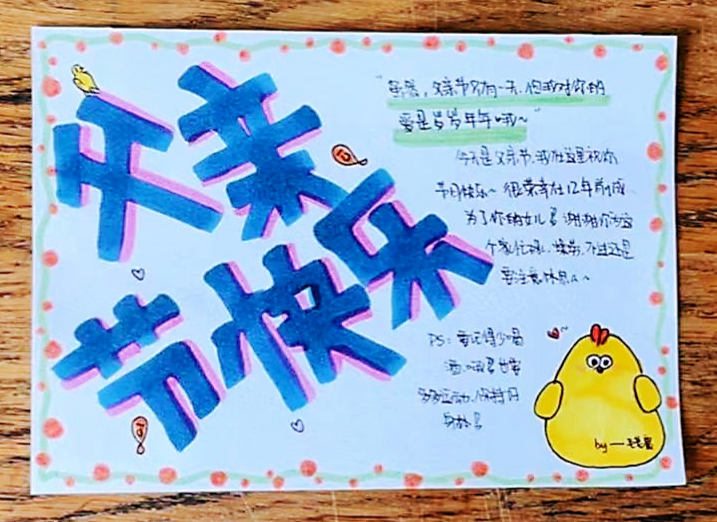 父亲
节快乐
"爸爸，父亲节只有一天，但我对你的
爱是岁岁年年哦~"
今天是父亲节，我在这里祝你
节日快乐~ 很荣幸在12年前成
为了你的女儿！谢谢你为这
个家忙碌、操劳，不过还是
要注意休息~
PS：要记得少喝
酒，哦！
多多运动，保持好
身材！
by——